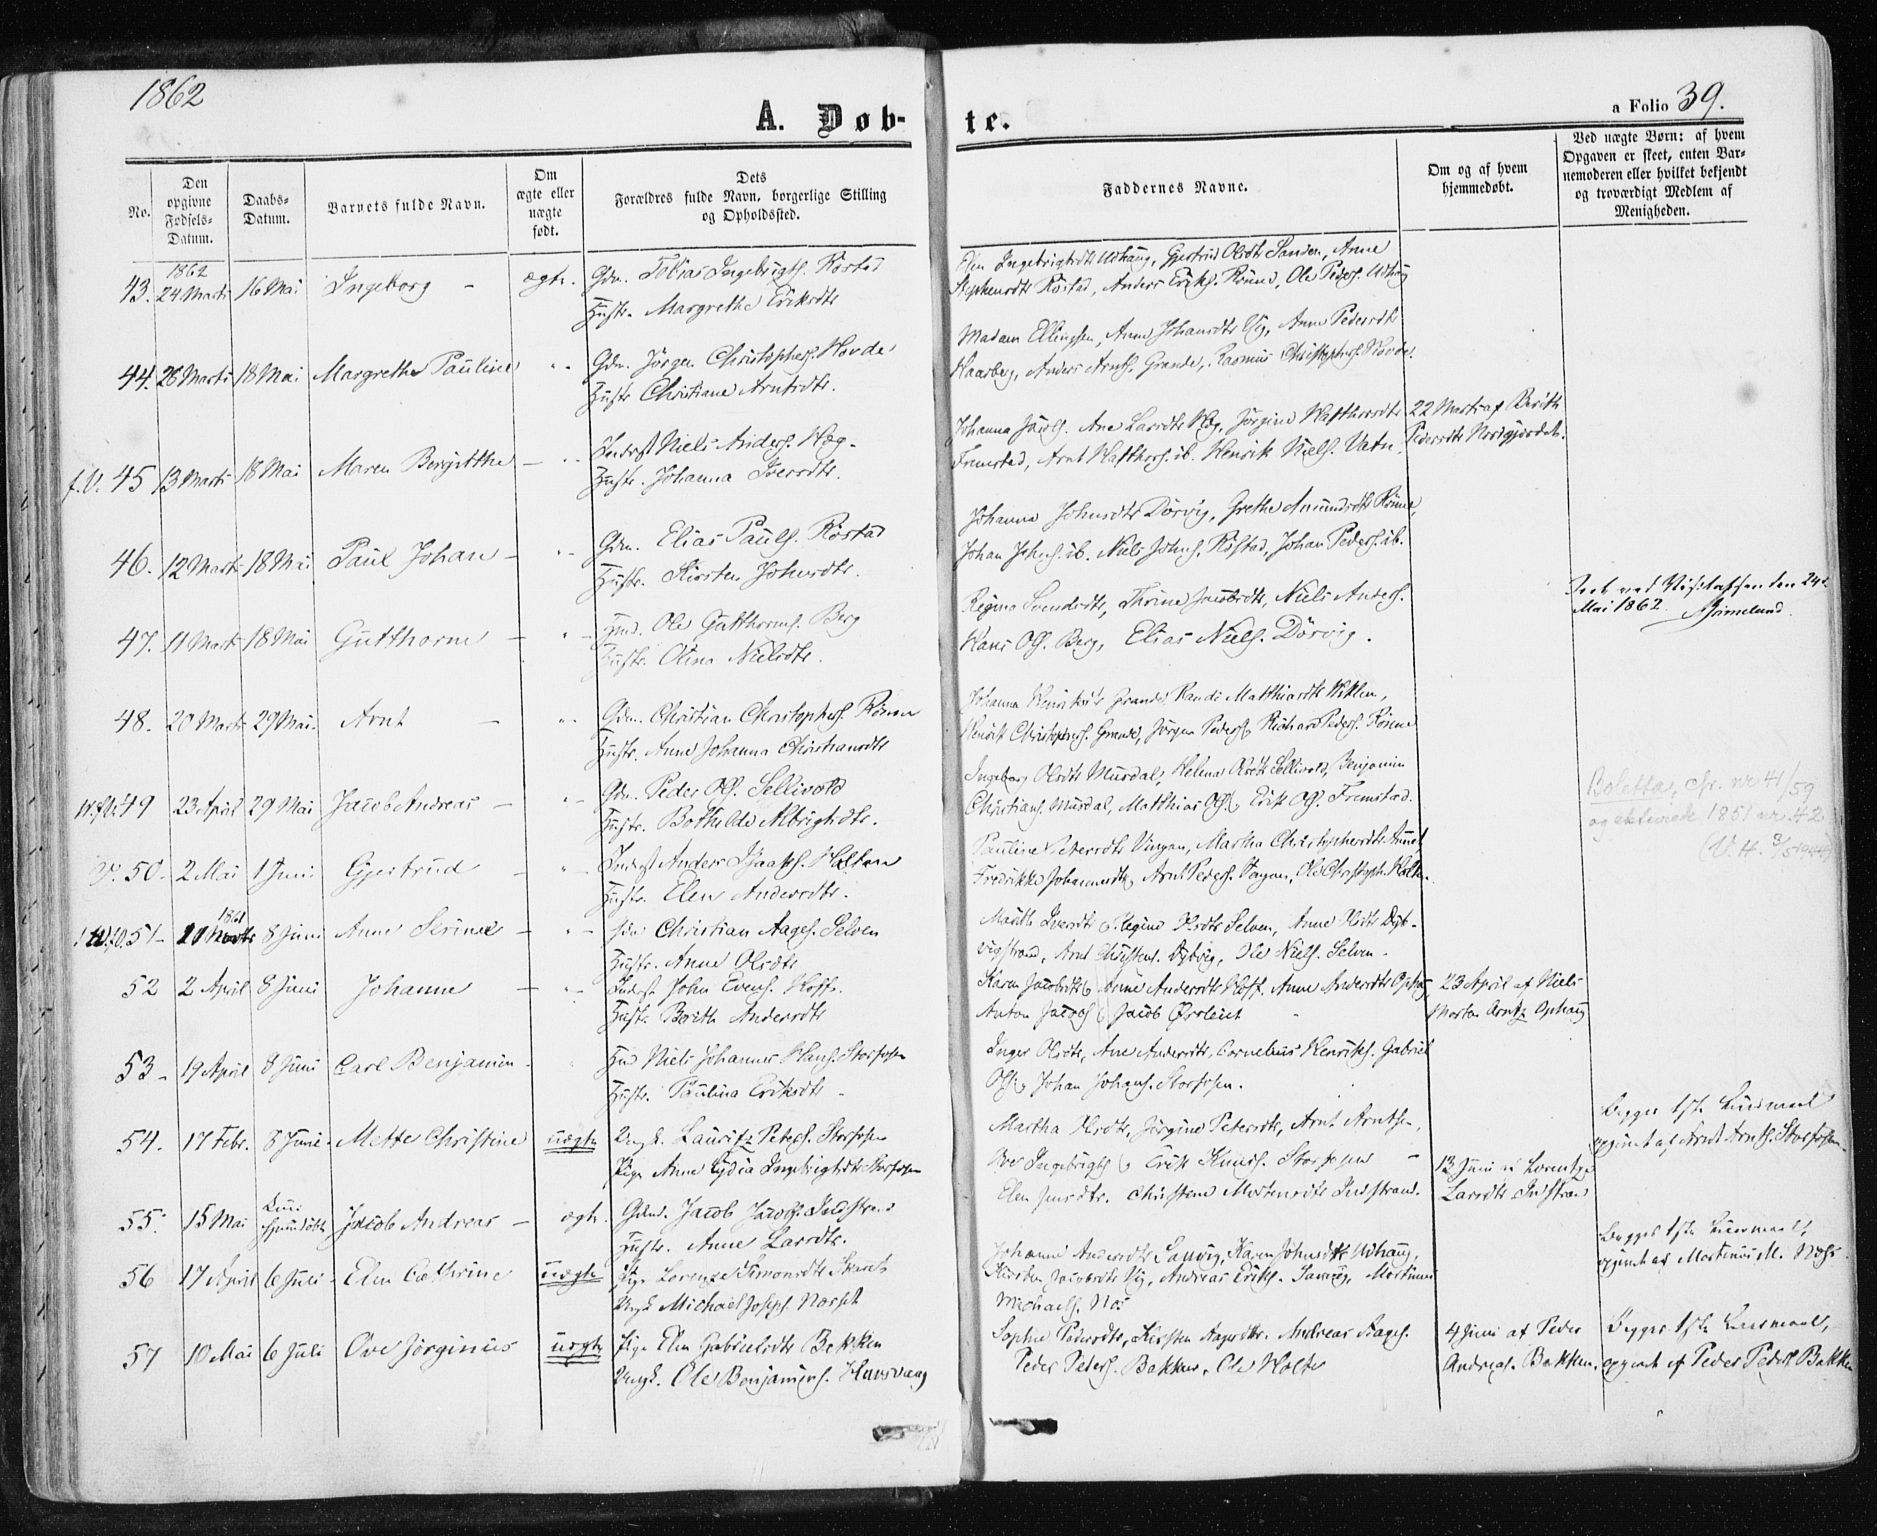 1862
A. Døb-
te.
a Folio 39.
No.
Den opgivne Fødsels-Datum.
Daabs-Datum.
Barnets fulde Navn.
Om ægte eller uægte født.
Dets Forældres fulde Navn, borgerlige Stilling og Opholdssted.
Faddernes Navne.
Om og af hvem hjemmedøbt.
Ved uægte Børn: af hvem Opgaven er skeet, enten Barnemoderen eller hvilket bekjendt og troværdigt Medlem af Menigheden.
1862
43. 24 Marts 16 Mai Ingeborg - ægte. Gdm. Tobias Ingebrigts. Röstad
Hustr. Margrethe Eriksdtr
Elen Ingebrigtsdtr Udhaug, Gjertrud Olsdtr Sanden, Anne
Stephensdtr Röstad, Anders Eriks. Rönne, Ole Peders. Udhaug
44. 26 Marts 18 Mai Margrethe Pauline Gdm. Jörgen Christophers. Hovde
Hustr Christiane Arntsdtr.
Madam Ellingsen, Anne Johansdtr Vig, Anne Pedersdtr
Haarberg, Anders Arnts. Grande, Rasmus Christophers. Hovde.
f.V. 45 13 Marts 18 Mai Maren Bergitthe - Inderst Niels Anders. Hæg.
Hustr. Johanna Iversdtr.
Johanna Jacobs. Ane Larsdtr Hæg, Jörgine Hafthorsdtr
Fremstad, Arnt Hafthors. ib. Henrik Niels. Vatn.
22 Marts af Berith
Pedersdtr Nordgjerdet.
46. 12 Marts 18 Mai Paul Johan - Gdm. Elias Pauls. Röstad
Hustr. Kirsten Johnsdtr.
Johanna Johnsdtr Dörvig, Grethe Amundsdtr Rönne,
Johan Johns. ib. Niels Johns. Röstad, Johan Peders. ib.
47. 11 Marts 18 Mai Gutthorm - Hmd. Ole Gutthorms. Berg
Hustr. Olina Nielsdtr.
Regine Svendsdtr, Thrine Jacobsdtr, Niels Anders.
Hans Ols. Berg, Elias Niels. Dörvig.
Seet ved Visitatsen den 24de
Mai 1862. Grimelund.
48. 20 Marts 29 Mai. Arnt - Gdm. Christian Christophers. Rönne
Hustr. Anne Johanna Christiansdtr
Johanna Henriksdtr Grande, Randi Matthiasdtr Viklem,
Henrik Christophers. Grande, Jörgen Peders. Richard Peders. Rönne
49 23 April 29 Mai Jacob Andreas - Gdm. Peder Ols. Sellivold
Hustr. Bothilde Albrigtsdtr.
Ingeborg Olsdtr Mursdal, Helena Olsdtr Sellivold, Benjamin
Christians. Mursdal, Matthias Ols. Erik Ols. Fremstad.
Boletta, cfr. nr 41/59
og ekteviede 1851 nr. 42
V. 50. 2 Mai 1 Juni Gjertrud - Inderst Anders Isaaks. Holten
Hustr. Elen Andersdtr.
Pauline Petersdtr Vingan, Martha Christophersdtr
Fredrikke Johannesdtr, Arnt Peders. Ole Christoph. Holten.
1861
51 - 11 Marts 8 Juni Anne Serine - Christian Aages. Selven
Hustr. Anne Olsdtr
Marith Iversdtr & Regine Olsdtr Selven, Anne Olsdtr Dyb-
vigstrand, Arnt Christens. Dybvig, Ole Niels. Selven.
52 2 April 8 Juni Johanne - Inderst John Evens. Hoff.
Hustr. Berith Andersdtr
Karen Jacobsdtr, Anne Andersdtr Hoff. Anne Andersdtr Ophaug
Anton Jacobs & Jacob Örsleiet
23 April af Niels
Morten Arntz Ophaug
53 - 19 April 8 Juni Carl Benjamin. Hmd Niels Johannes Hans. Storfosen
Hustr. Paulina Eriksdtr.
Inger Olsdtr, Ane Andersdtr, Cornelius Henriks. Gabriel
Ols. Johan Johans. Storfosen.
54. 17 Febr. 8 Juni - Mette Christine uægte Ungk. Lauritz Peters. Storfosen
Pige Anne Lydia Ingebrigtsdtr Storfosen
Martha Olsdtr, Jörgine Petersdtr, Arnt Arntsen,
Ove Ingebrigts & Erik Knuds. Storfosen -
Begges 1ste Leiermaal
opgivet af Arnt Arnts. Storfosen.
55. 15 Mai Kun hjemdöbt Jacob Andreas - ægte. Gdm. Jacob Jacobs. Indstrand
Hustr. Anne Larsdtr.
Elen Jensdtr. Christine Mortensdtr Indstrand.
13 Juni af Lorentze
Larsdtr Indstrand
56 17 April 6 Juli - Elen Cathrine uægte Pige Lorenze Simonsdtr
Ungk Michael Josephs. Norset
Johanne Andersdtr Sanvig, Karen Johnsdtr Udhaug,
Kirsten Jacobsdtr Vig, Andreas Eriks. Sanvig, Mortinus
Michaels. Næs
Begges 1ste Leiermaal,
opgivet af Mortinus M. Næs
57 10 Mai 6 Juli Ove Jörginus uægte Pige Elen Gabrielsdtr Bekken
Ungk. Ole Benjamins. Husvaag
Sophie Pedersdtr, Kirsten Aagesdtr. Andreas Aages.
Peder Peters. Bekken, Ole Holte
4 Juni af Peder
Andreas. Bekken.
Begges 1ste Leiermaal,
opgivet af Peder Peders Bekken